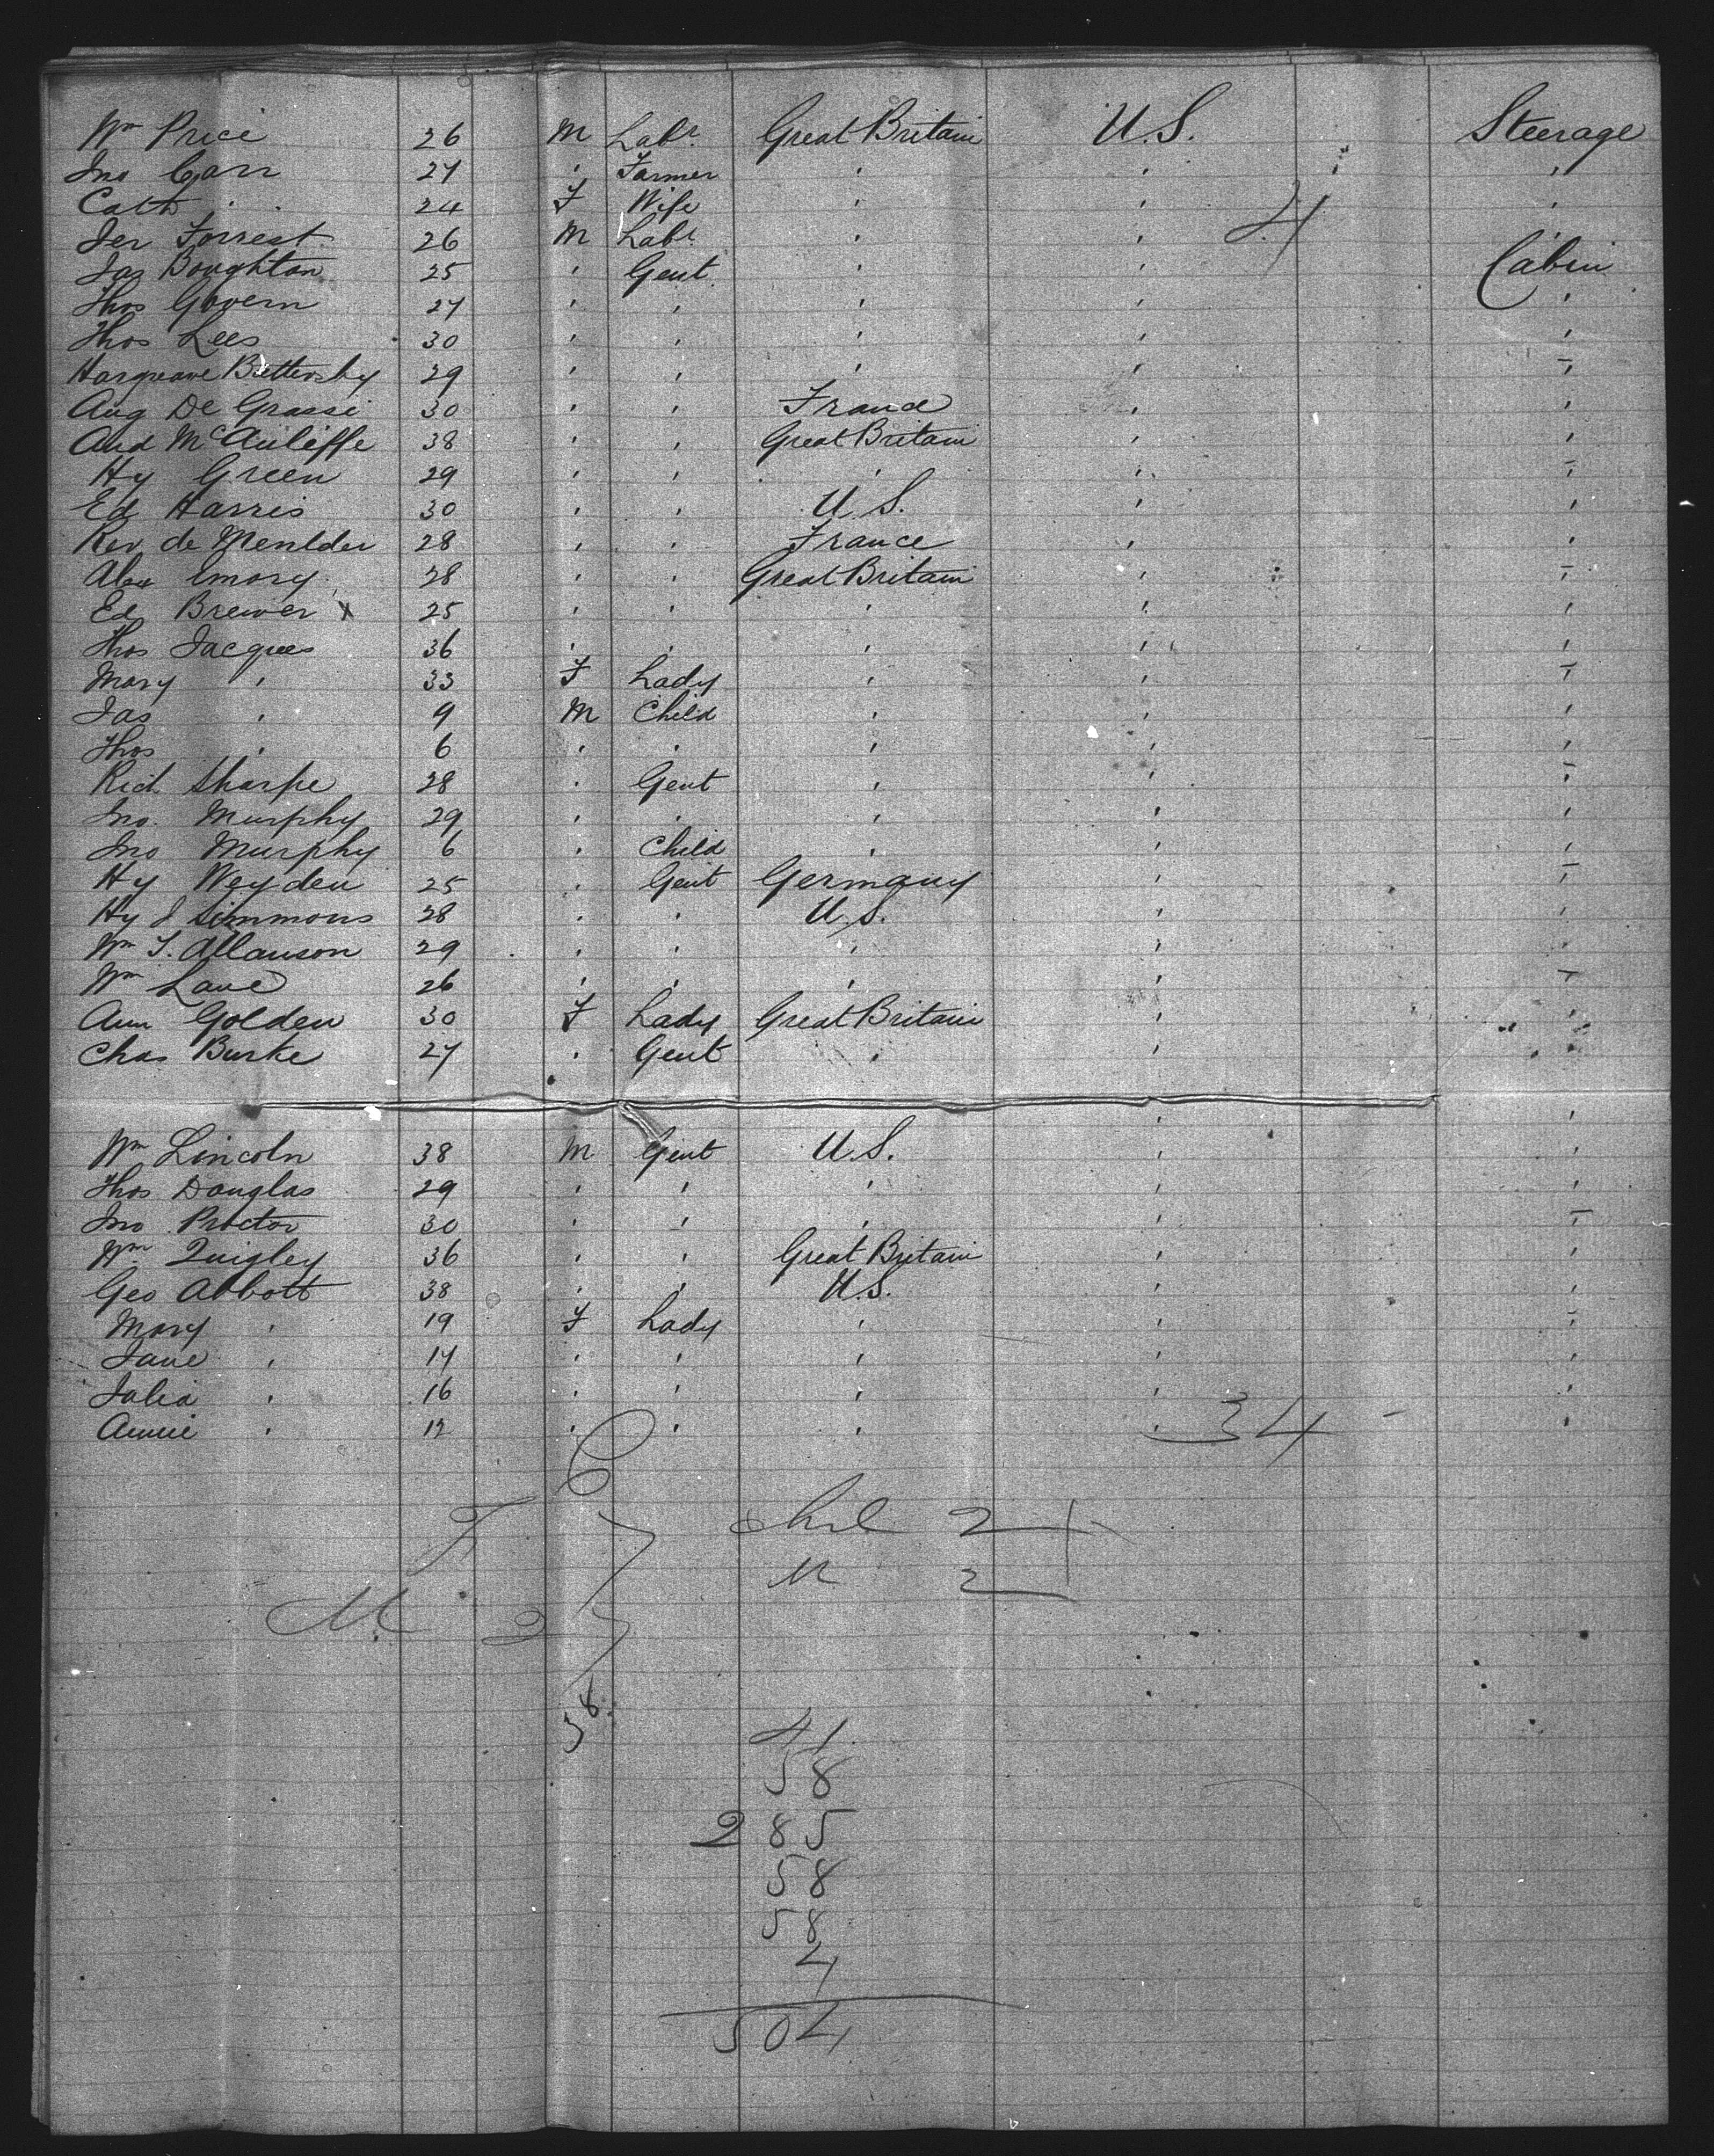 Wm Price 26 M Labr. Great Britain U.S. Steerage
Jno Carr 27 " Farmer " " "
Cath " 24 F Wife " " "
Jer Forrest 26 M Labr. " " 4 "
Jas Boughton 25 " Gent " " Cabin
Thos Govern 27 " " " " "
Thos Lees 30 " " " " "
Hargreave Battersby 29 " " " " "
Aug De Grasse 30 " " France " "
And McAuliffe 38 " " Great Britain " "
Hy Green 29 " " " " "
Ed Harris 30 " " U.S. " "
Rev de 28 " " France " "
Alex Emory 28 " " Great Britain " "
Ed Brewer x 25 " " " " "
Thos Jacques 36 " " " " "
Mary " 33 F Lady " " "
Jas " 9 M Child " " "
Thos " 6 " " " " "
Rich Sharpe 28 " Gent " " "
Jno. Murphy 29 " " " " "
Jno Murphy 6 " Child " " "
Hy Weyden 25 " Gent Germany " "
Hy J Simmons 28 " " U.S. " "
Wm T. Allanson 29 " " " " "
Wm Lane 26 " " " " "
Ann Golden 30 F Lady Great Britain " "
Chas Burke 27 " Gent " " "
Wm Lincoln 38 M Gent U.S. " "
Thos Douglas 29 " " " " "
Jno Proctor 30 " " " " "
Wm Quigley 36 " " Great Britain " "
Geo Abbott 38 " " U.S. " "
Mary " 19 F Lady " " "
Jane " 14 " " " " "
Julia " 16 " " " " "
Annie " 12 " " " " 34 "
F 6 Chil 2
M 2
M
58
41
58
285
58
58
4
504